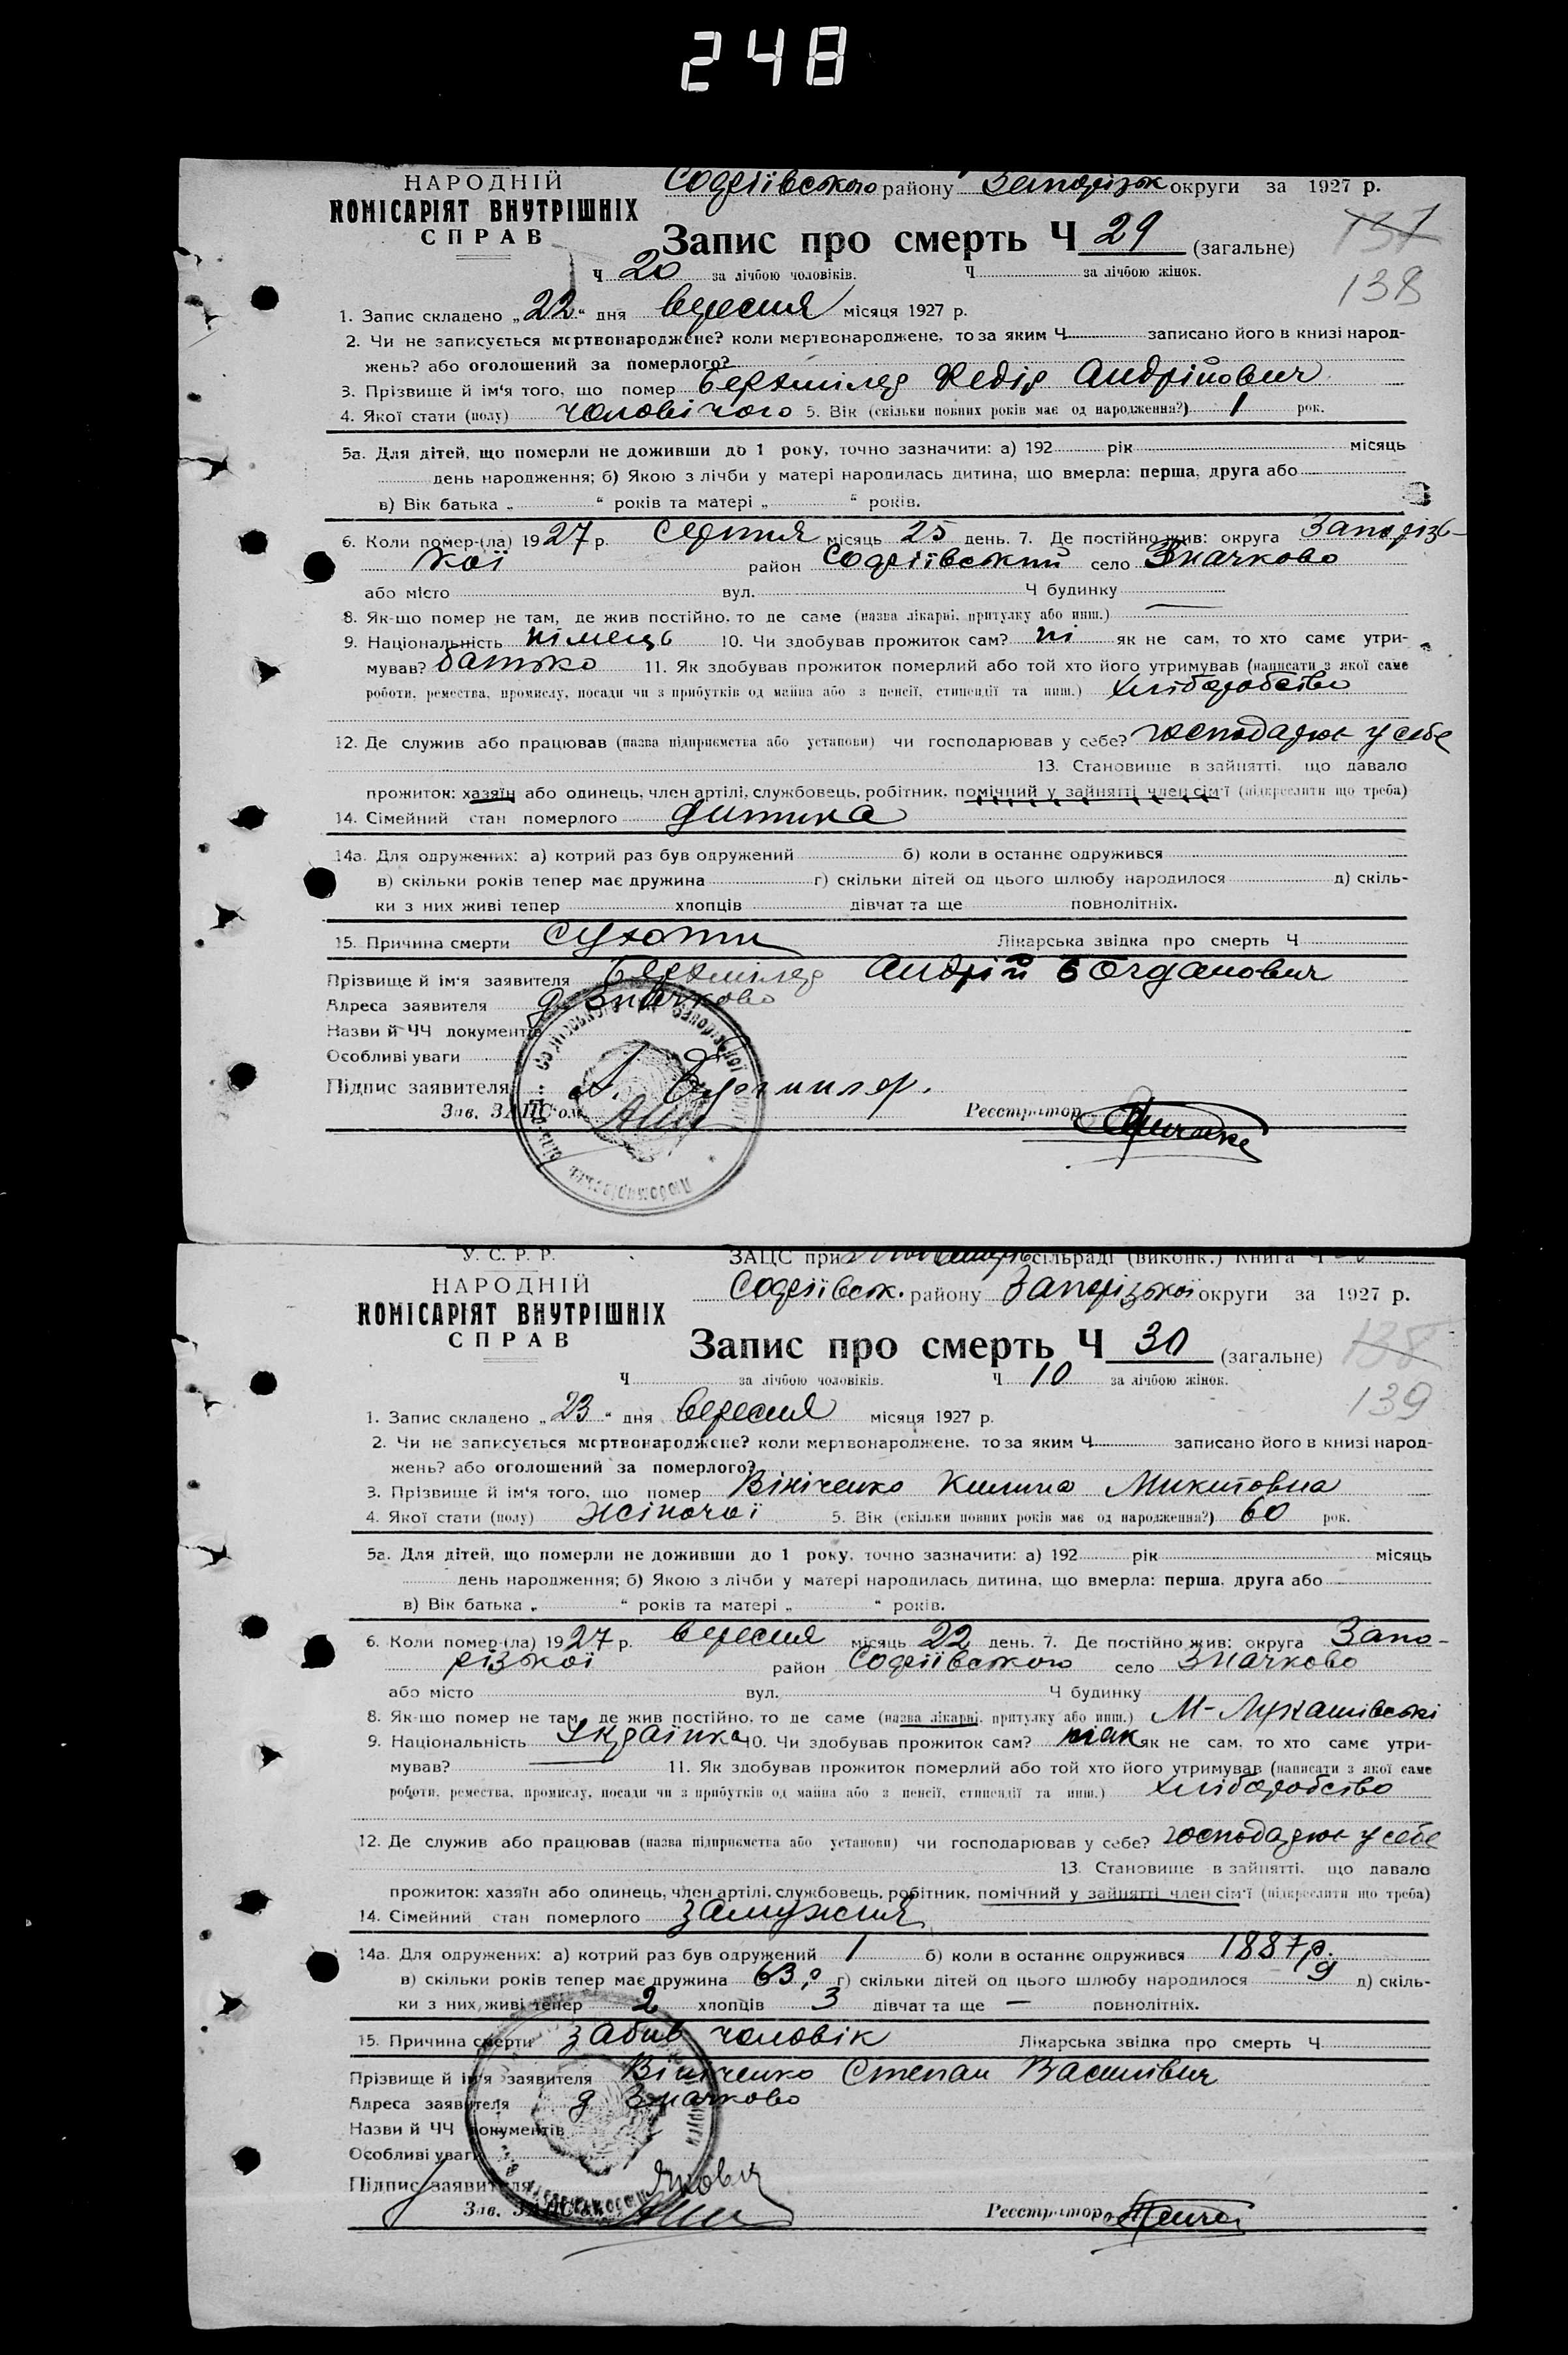 248
НАРОДНІЙ
КОМІСАРІЯТ ВНУТРІШНІХ
СПРАВ
Софіївського району Запорізьк округи за 1927 р.
Запис про смерть Ч 29 (загальне)
137
138
Ч 20 за лічбою чоловіків. Ч за лічбою жінок.
1. Запис складено „22“ дня вересня місяця 1927 р.
2. Чи не записується мертвонароджене? коли мертвонароджене, то за яким Ч записано його в книзі народ-
жень? або оголошений за померлого?
3. Прізвище й ім‘я того, що помер Бергмілер Федір Андрійович
4. Якої стати (полу) чоловічого 5. Вік (скільки повних років має од народження?) 1 рок.
5а. Для дітей, що померли не доживши до 1 року, точно зазначити: а) 192 рік місяць
день народження; б) Якою з лічби у матері народилась дитина, що вмерла: перша, друга або
в) Вік батька „ “ років та матері „ “ років.
6. Коли помер-(ла) 1927 р. Серпня місяць 25 день. 7. Де постійно жив: округа Запорізь-
кої район Софіївський село Значково
або місто вул. Ч будинку
8. Як-що помер не там, де жив постійно, то де саме (назва лікарні, притулку або инш.) —
9. Національність німець 10. Чи здобував прожиток сам? ні як не сам, то хто саме утри-
мував? батько 11. Як здобував прожиток померлий або той хто його утримував (написати з якої саме
роботи, ремества, промислу, посади чи з прибутків од майна або з пенсії, стипендії та инш.) хліборобство
12. Де служив або працював (назва підприємства або установи) чи господарював у себе? господарює у себе
13. Становище в зайнятті, що давало
прожиток: хазяїн або одинець, член артілі, службовець, робітник, помічний у зайнятті член сім'ї (підкреслити що треба)
14. Сімейний стан померлого дитина
14а. Для одружених: а) котрий раз був одружений б) коли в останнє одружився
в) скільки років тепер має дружина г) скільки дітей од цього шлюбу народилося д) скіль-
ки з них живі тепер хлопців дівчат та ще повнолітніх.
15. Причина смерти Сухоти Лікарська звідка про смерть Ч
Прізвище й ім‘я заявителя Бергмілер Андрій Богданович
Адреса заявителя д. Значково
Назви й ЧЧ документів
Особливі уваги
Підпис заявителя А.
Зав. ЗАГС‘ом Реєстратор
У. С. Р. Р. ЗАЦС при сільраді (виконк.) Книга Ч
НАРОДНІЙ
КОМІСАРІЯТ ВНУТРІШНІХ
СПРАВ
Софіївськ. району Запорізької округи за 1927 р.
Запис про смерть Ч 30 (загальне)
138
139
Ч за лічбою чоловіків. Ч 10 за лічбою жінок.
1. Запис складено „23“ дня вересня місяця 1927 р.
2. Чи не записується мертвонароджене? коли мертвонароджене, то за яким Ч записано його в книзі народ-
жень? або оголошений за померлого?
3. Прізвище й ім‘я того, що помер Вініченко Килина Микитовна
4. Якої стати (полу) жіночої 5. Вік (скільки повних років має од народження?) 60 рок.
5а. Для дітей, що померли не доживши до 1 року, точно зазначити: а) 192 рік місяць
день народження; б) Якою з лічби у матері народилась дитина, що вмерла: перша, друга або
в) Вік батька „ “ років та матері „ “ років.
6. Коли помер-(ла) 1927 р. вересня місяць 22 день. 7. Де постійно жив: округа Запо-
різької район Софіївського село Значково
або місто вул. Ч будинку
8. Як-що помер не там, де жив постійно, то де саме (назва лікарні, притулку або инш.) М-Лукашівські
9. Національність Українка 10. Чи здобував прожиток сам? так як не сам, то хто саме утри-
мував? — 11. Як здобував прожиток померлий або той хто його утримував (написати з якої саме
роботи, ремества, промислу, посади чи з прибутків од майна або з пенсії, стипендії та инш.) хліборобство
12. Де служив або працював (назва підприємства або установи) чи господарював у себе? господарює у себе
13. Становище в зайнятті, що давало
прожиток: хазяїн або одинець, член артілі, службовець, робітник, помічний у зайнятті член сім'ї (підкреслити що треба)
14. Сімейний стан померлого замужня
14а. Для одружених: а) котрий раз був одружений 1 б) коли в останнє одружився 1887 р.
в) скільки років тепер має дружина 63 р г) скільки дітей од цього шлюбу народилося 9 д) скіль-
ки з них живі тепер 2 хлопців 3 дівчат та ще — повнолітніх.
15. Причина смерти забив чоловік Лікарська звідка про смерть Ч
Прізвище й ім‘я заявителя Вініченко Степан Васильвич
Адреса заявителя д Значково
Назви й ЧЧ документів
Особливі уваги
Підпис заявителя
Зав. ЗАГС Реєстратор